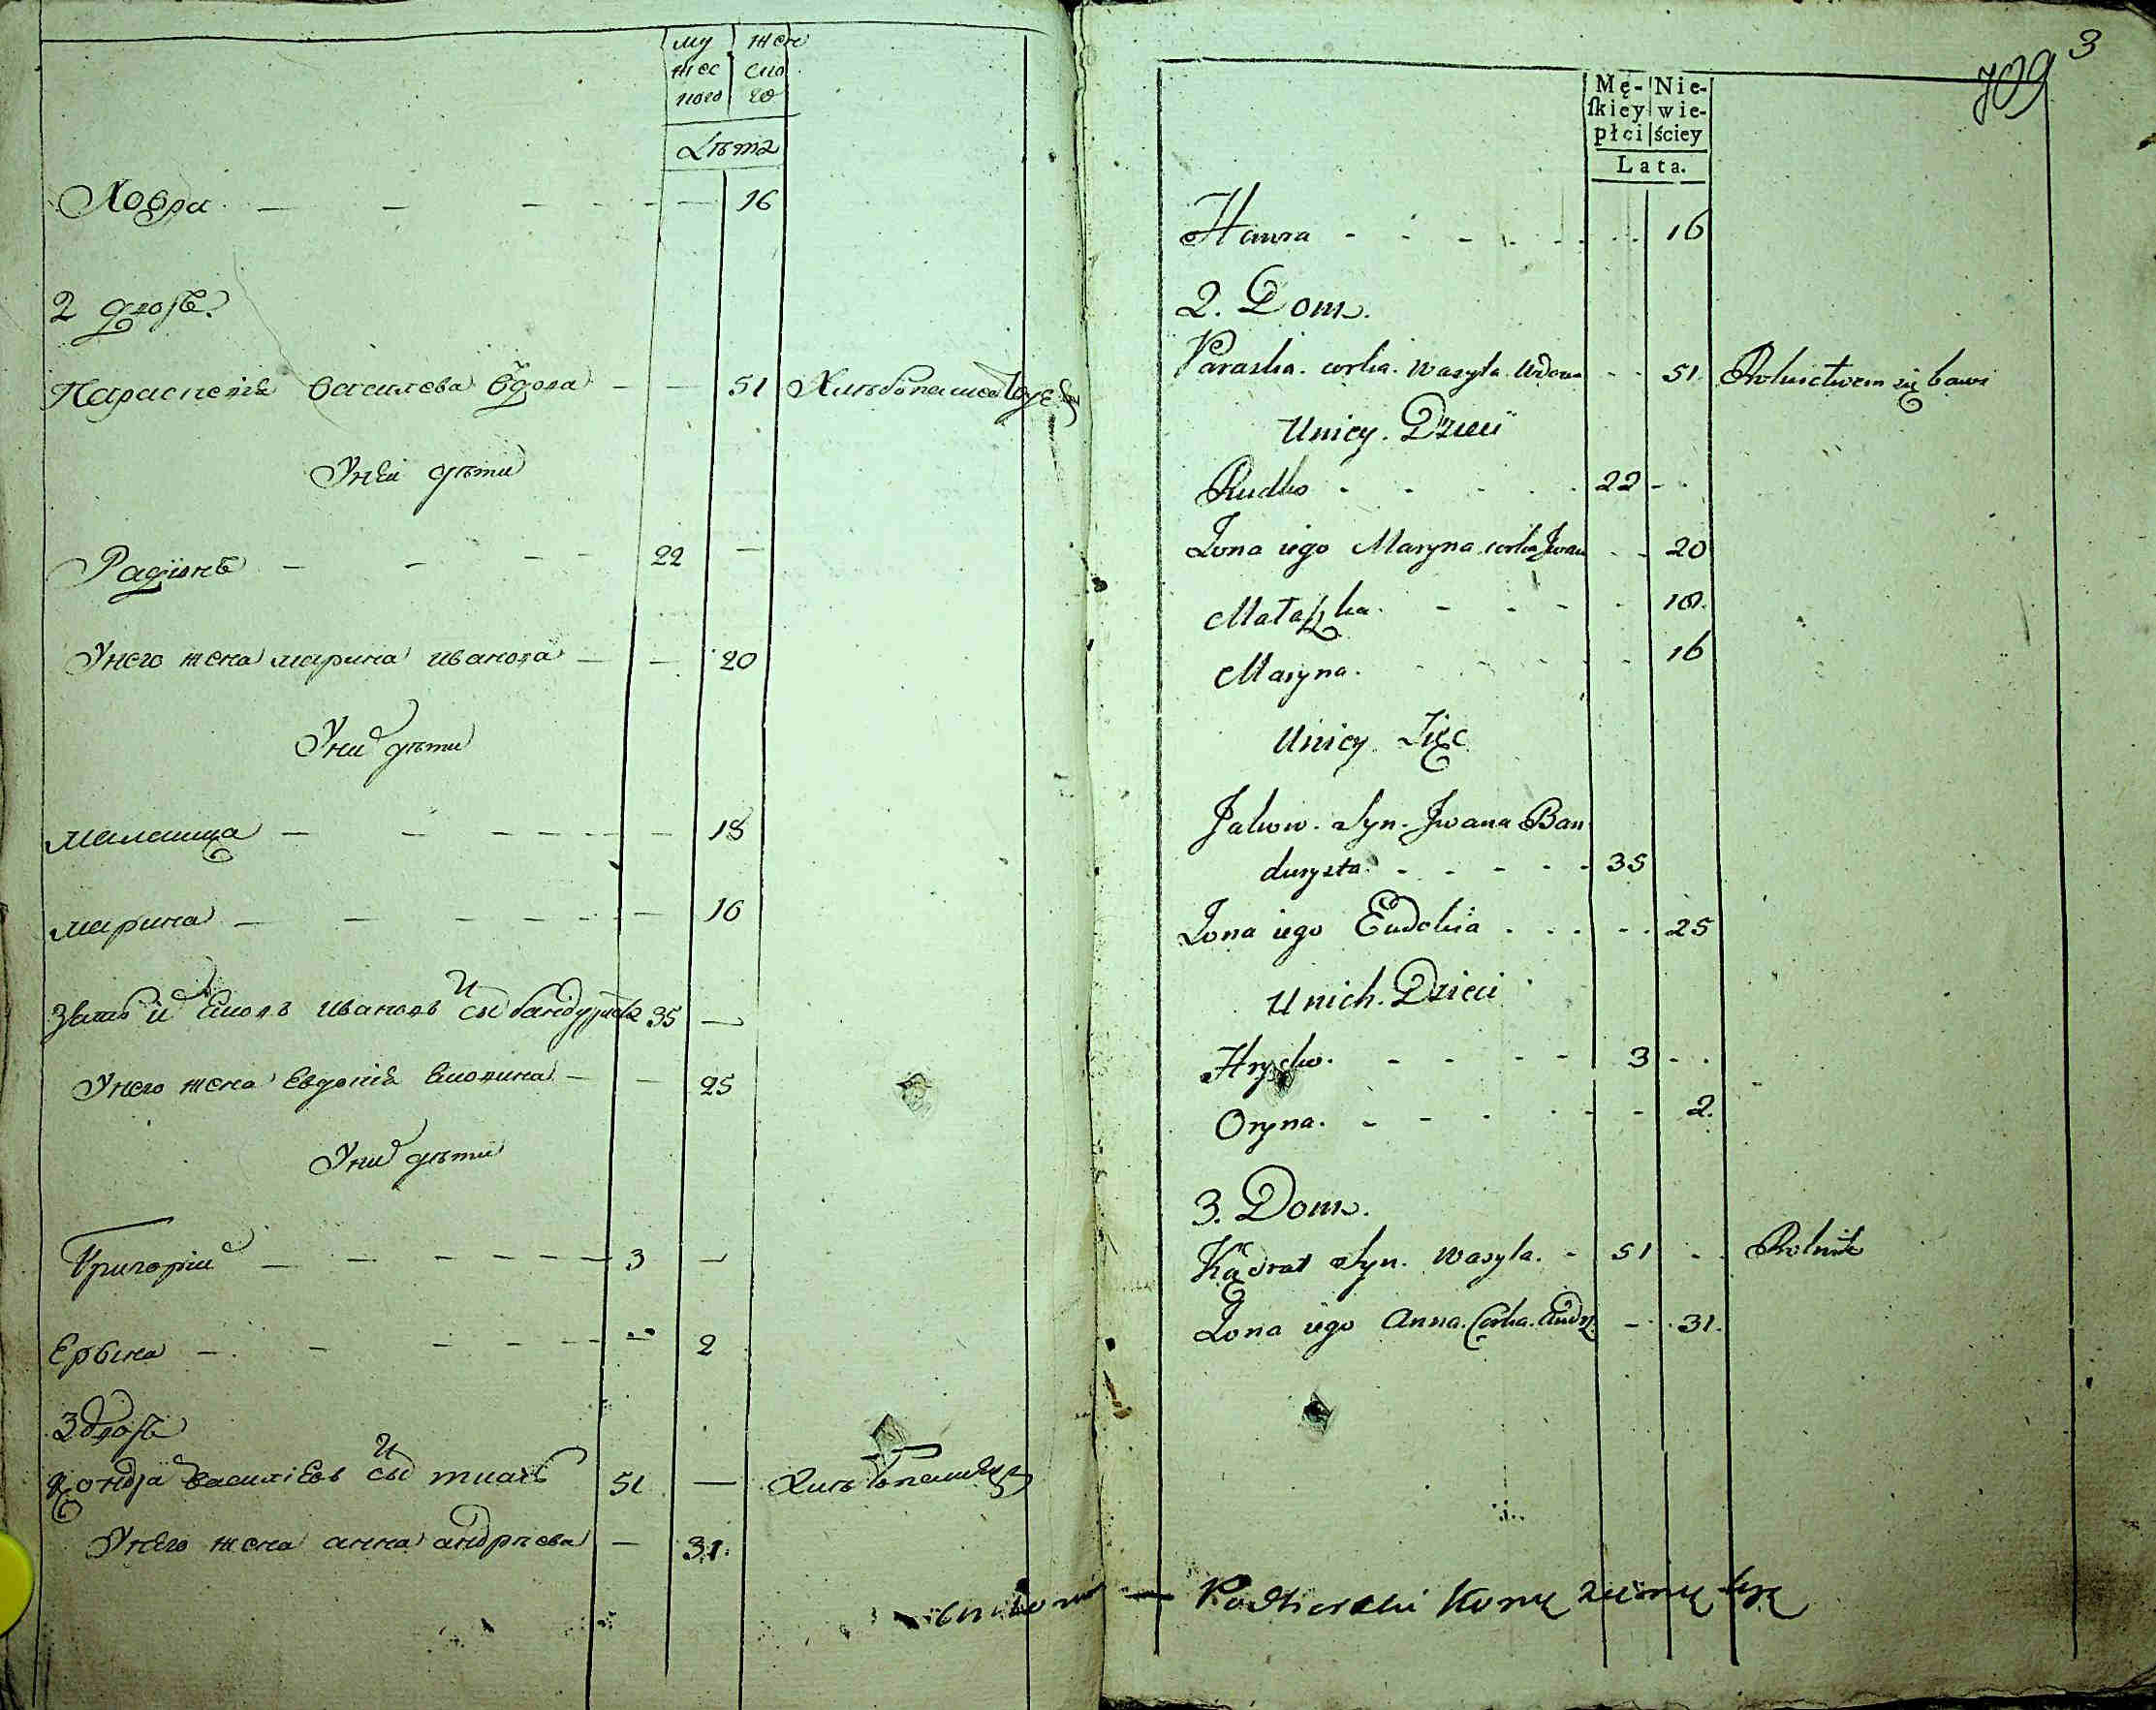 му жес кого
жен ско го
Лѣта
Ховра — — — — 16
2 дворъ
Параскевія Василева вдова — — 51
У неи дѣти
Радіонъ — — — 22 —
У него жена марина иванова — — 20
У ни дѣти
маланка — — — — — 18
марина — — — — — 16
Зять иванъ сы 35 —
У него жена Евдокія — — 25
У ни дѣти
Григорій — — — — — 3 —
Ерына — — — — — 2
3 дворъ
василіевъ сы 51 —
У него жена анна андрѣева — 31.
3
709
Mę-ſkiey płci
Nie-wie-ściey
Lata.
Hawra - - - - - 16
2. Dom.
Paraska. corka. Wasyla. Wdowa - - 51. Rolnictwem się bawi
U nicy. Dzieci
Rudko - - - - 22 - -
Zona iego Maryna corka Jwan - - 20
Małaszka. - - - - 18.
Maryna. - - - - 16
U nicy Zięć
Jakow. Syn. Jwana Ban
durysta. - - - - 35
Zona iego Eudokia . - - - 25
U nich. Dzieci
Hrycko. - - - - 3 - -
Oryna. - - - - - 2.
3. Dom.
Kądrat Syn. Wasyla. - 51 - - Rolnik
Zona iego Anna. Corka. Andr. - - 31.